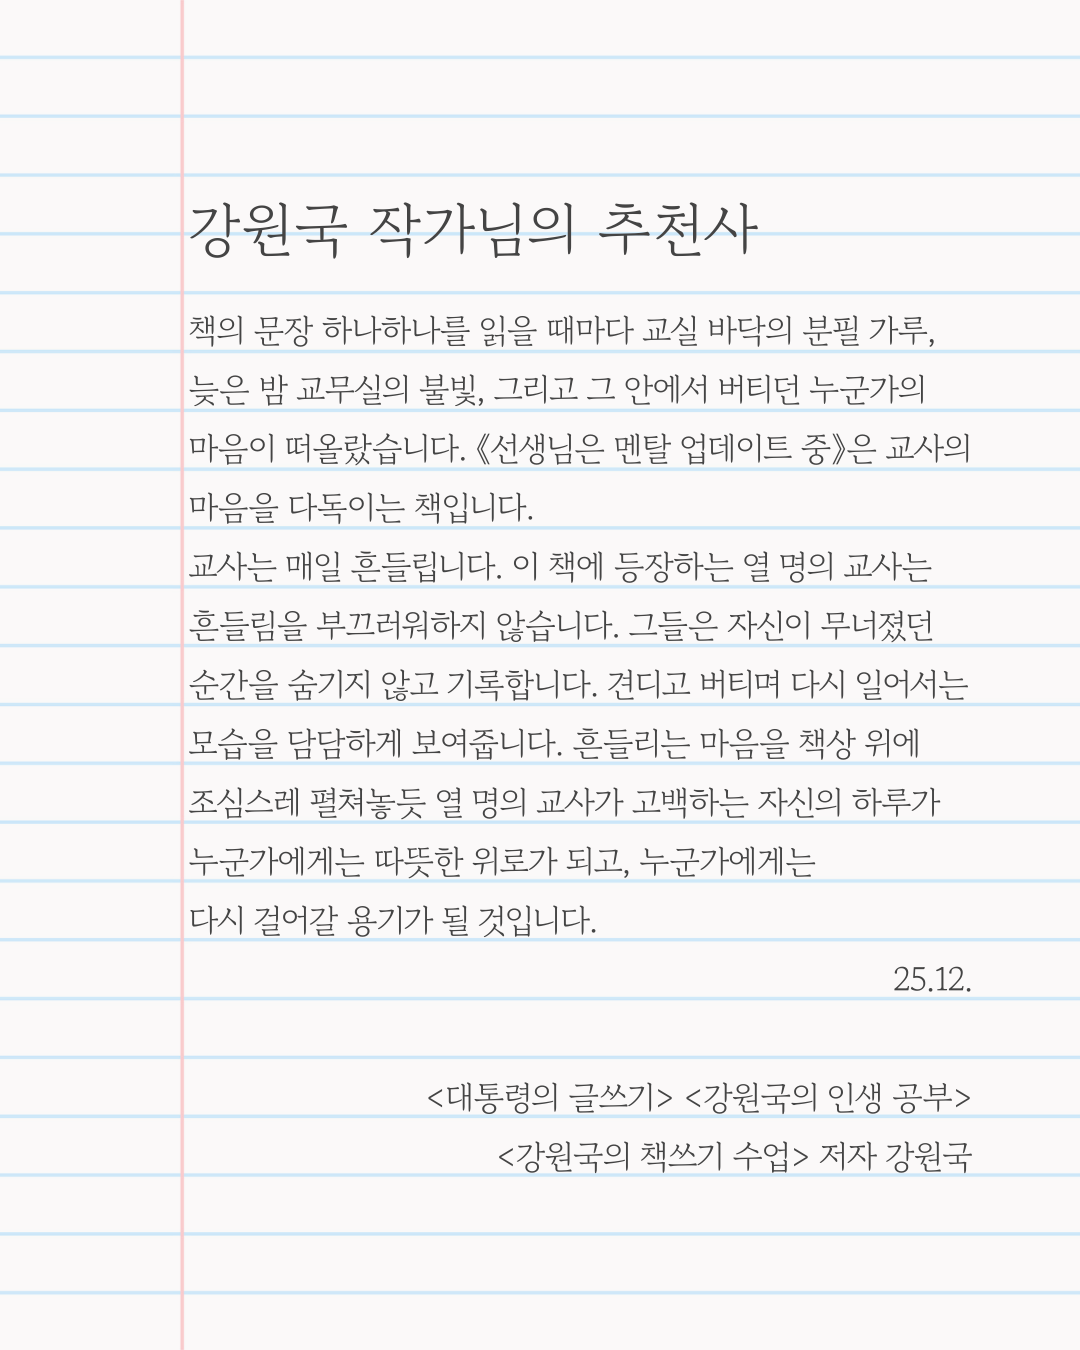 강원국 작가님의 추천사
책의 문장 하나하나를 읽을 때마다 교실 바닥의 분필 가루,
늦은 밤 교무실의 불빛, 그리고 그 안에서 버티던 누군가의
마음이 떠올랐습니다. 《선생님은 멘탈 업데이트 중》은 교사의
마음을 다독이는 책입니다.
교사는 매일 흔들립니다. 이 책에 등장하는 열 명의 교사는
흔들림을 부끄러워하지 않습니다. 그들은 자신이 무너졌던
순간을 숨기지 않고 기록합니다. 견디고 버티며 다시 일어서는
모습을 담담하게 보여줍니다. 흔들리는 마음을 책상 위에
조심스레 펼쳐놓듯 열 명의 교사가 고백하는 자신의 하루가
누군가에게는 따뜻한 위로가 되고, 누군가에게는
다시 걸어갈 용기가 될 것입니다.
25.12.
<대통령의 글쓰기> <강원국의 인생 공부>
<강원국의 책쓰기 수업> 저자 강원국